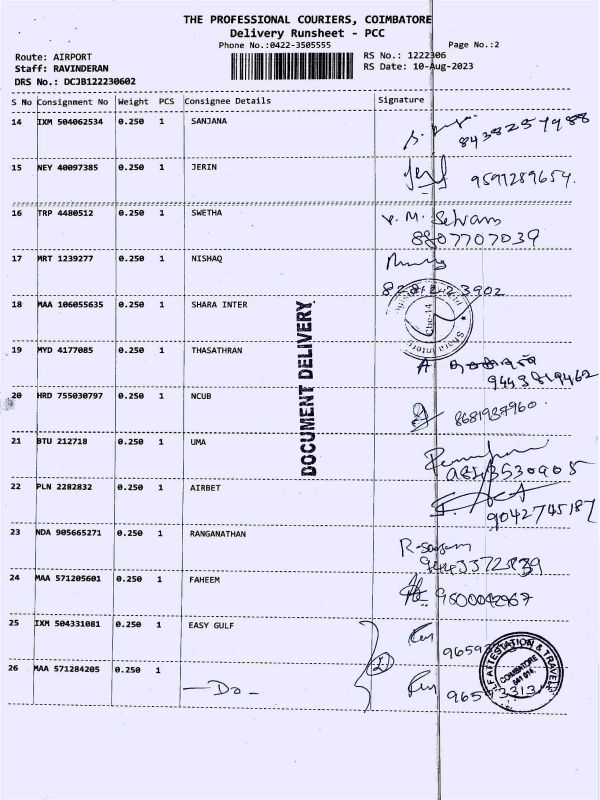 THE PROFESSIONAL COURIERS, COIMBATORE
Delivery Runsheet - PCC
Phone No.:0422-3505555 Page No.:2
Route: AIRPORT RS No.: 1222306
Staff: RAVINDERAN RS Date: 10-Aug-2023
DRS No.: DCJB122230602
S No Consignment No Weight PCS Consignee Details Signature
14 IXM 504062534 0.250 1 SANJANA
8438257988
15 NEY 40097385 0.250 1 JERIN
9591289654.
16 TRP 4480512 0.250 1 SWETHA M. Selvam
8807707039
17 MRT 1239277 0.250 1 NISHAQ
18 MAA 106055635 0.250 1 SHARA INTER
19 MYD 4177085 0.250 1 THASATHRAN
9443819462
20 HRD 755030797 0.250 1 NCUB
8681937960.
21 BTU 212718 0.250 1 UMA
22 PLN 2282832 0.250 1 AIRBET
9042745187
23 NDA 905665271 0.250 1 RANGANATHAN
24 MAA 571205601 0.250 1 FAHEEM
25 IXM 504331081 0.250 1 EASY GULF
26 MAA 571284205 0.250 1 —Do—
DOCUMENT DELIVERY